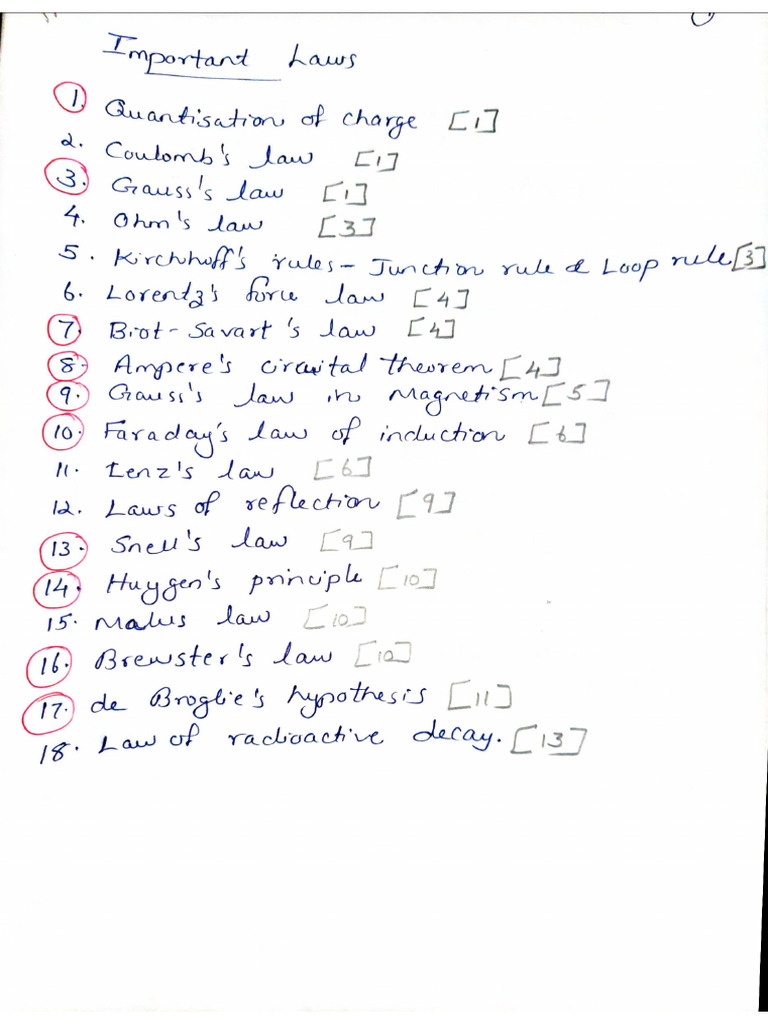 Important Laws
1. Quantisation of charge [1]
2. Coulomb's law [1]
3. Gauss's law [1]
4. Ohm's law [3]
5. Kirchhoff's rules - Junction rule & Loop rule [3]
6. Lorentz's force law [4]
7. Biot-Savart's law [4]
8. Ampere's circuital theorem [4]
9. Gauss's law in Magnetism [5]
10. Faraday's law of induction [6]
11. Lenz's law [6]
12. Laws of reflection [9]
13. Snell's law [9]
14. Huygen's principle [10]
15. Malus law [10]
16. Brewster's law [10]
17. de Broglie's hypothesis [11]
18. Law of radioactive decay. [13]